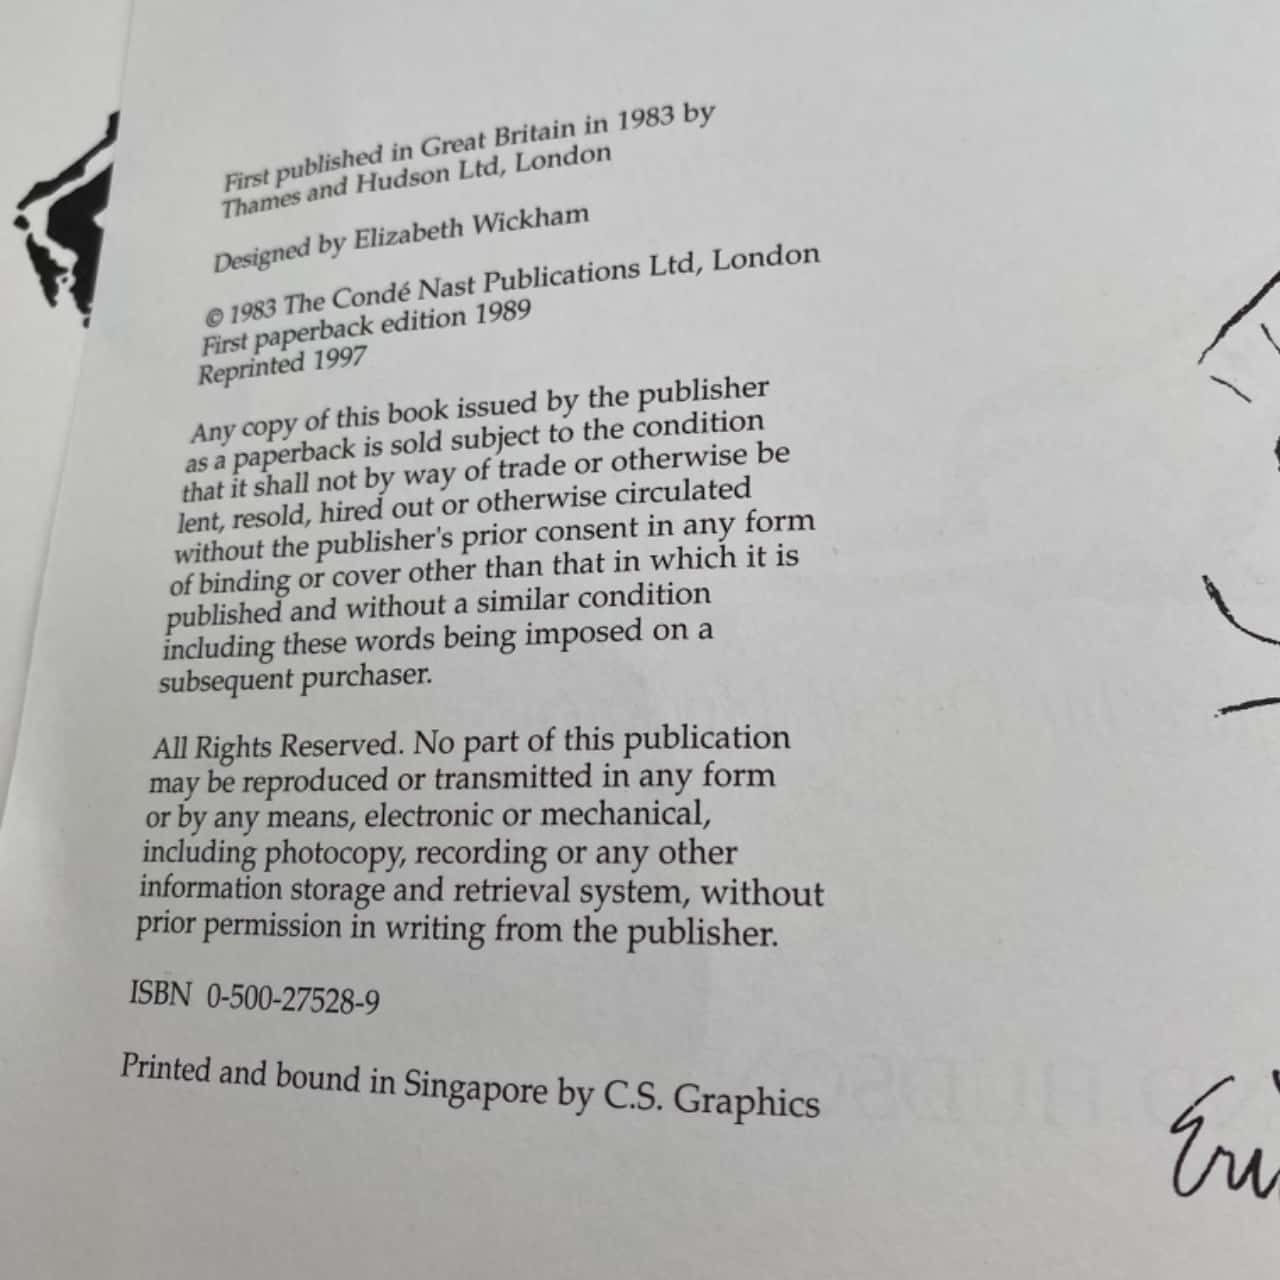 First published in Great Britain in 1983 by
Thames and Hudson Ltd, London
Designed by Elizabeth Wickham
© 1983 The Condé Nast Publications Ltd, London
First paperback edition 1989
Reprinted 1997
Any copy of this book issued by the publisher
as a paperback is sold subject to the condition
that it shall not by way of trade or otherwise be
lent, resold, hired out or otherwise circulated
without the publisher's prior consent in any form
of binding or cover other than that in which it is
published and without a similar condition
including these words being imposed on a
subsequent purchaser.
All Rights Reserved. No part of this publication
may be reproduced or transmitted in any form
or by any means, electronic or mechanical,
including photocopy, recording or any other
information storage and retrieval system, without
prior permission in writing from the publisher.
ISBN 0-500-27528-9
Printed and bound in Singapore by C.S. Graphics